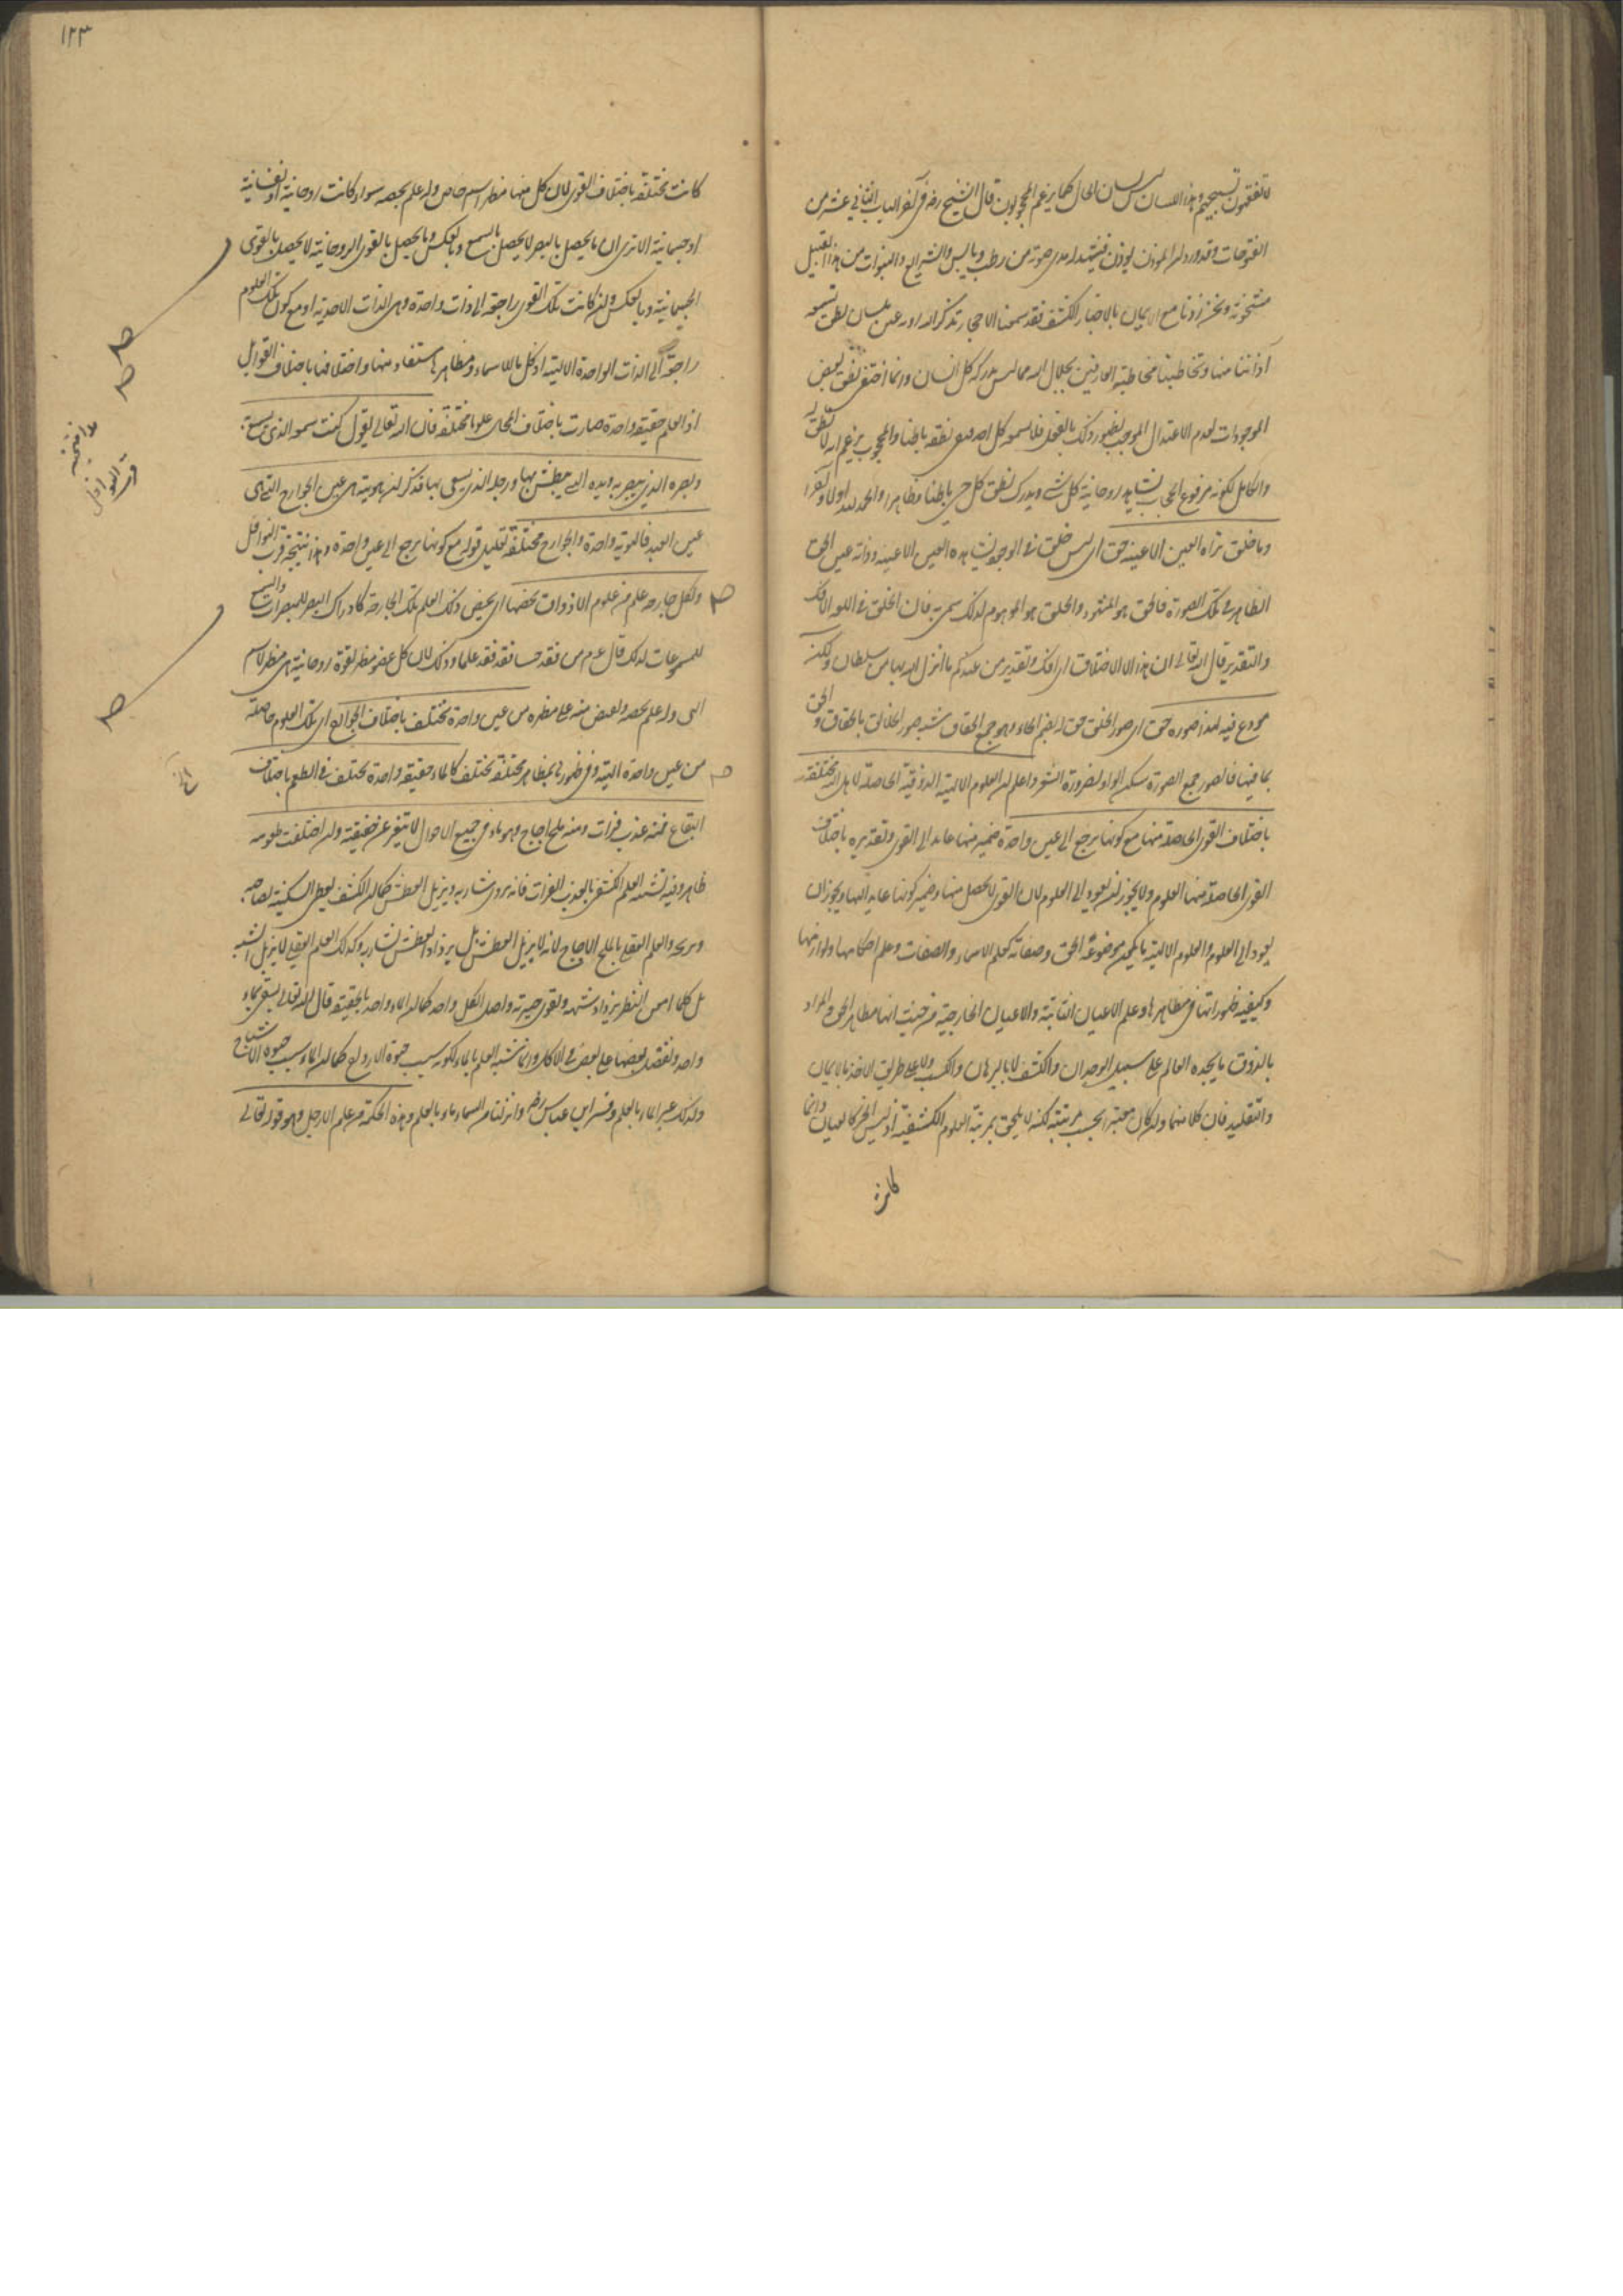 لا تفقهون تسبيحهم وهذا اللسان ليس لسان الحال كما يزعم المحجوبون قال الشيخ رضه في آخر الباب الثاني عشر من
الفتوحات وقد ورد ان المؤذن يؤذن فيشهد له مدى صوته من رطب ويابس والشرايع والنبوات من هذا القبيل
مشحونة ونحن زدنا مع الايمان بالاخبار الكشف فقد سمعنا الاحجار تذكر الله رؤية عين بلسان نطق تسمعه
آذاننا منها وتخاطبنا مخاطبة العارفين بجلال الله مما ليس يدركه كل انسان وانما اختفى نطق بعض
الموجودات لعدم الاعتدال الموجب لظهور ذلك بالفعل فلا يسمعه كل احد فبقى نطقه باطنا والمحجوب يزعم انه لا نطق له
والكامل لكونه مرفوع الحجاب يشاهد روحانية كل شئ ويدرك نطق كل حي باطنا وظاهرا والحمد لله اولا وآخرا
وما خلق تراه العين الا عينه حق اى ليس خلق في الوجود يشاهده العين الا عينه وذاته عين الحق
الظاهر في تلك الصورة فالحق هو المشهود والخلق هو الموهوم لذلك سمى به فان الخلق في اللغة الافك
والتقدير قال الله تعالى ان هذا الا اختلاق اى افك وتقدير من عندكم ما انزل الله بها من سلطان ولكن
مودع فيه لهذا صوره حق اى صور الخلق حق له بضم الحاء وهو جمع الحقة شبه صور الخلائق بالحقاق والحق
بما فيها فالصور جمع الصورة سكن الواو لضرورة الشعر واعلم ان العلوم الالهية الذوقية الحاصلة لاهل الله مختلفة
باختلاف القوى الحاصلة منها مع كونها يرجع الى عين واحدة ضمير منها عائد الى القوى وتقديره باختلاف
القوى الحاصلة منها العلوم ولا يجوز ان يعود الى العلوم لان القوى لا يحصل منها وضمير كونها عايد اليها ويجوز ان
يعود الى العلوم والعلوم الالهية ما يكون موضوعه الحق وصفاته كعلم الاسماء والصفات وعلم احكامها ولوازمها
وكيفية ظهوراتها في مظاهرها وعلم الاعيان الثابتة والاعيان الخارجية من حيث انها مظاهر الحق والمراد
بالذوق ما يجده العالم على سبيل الوجدان والكشف لا بالبرهان والكسب ولا على طريق الاخذ بالايمان
والتقليد فان كلا منهما وان كان معتبرا بحسب مرتبته لكنه لا يلحق بمرتبة العلوم الكشفية اذ ليس الخبر كالعيان وانما
كانت
١٢٣
كانت مختلفة باختلاف القوى لان كل منها مظهر اسم خاص وله علم يخصه سواء كانت روحانية او نفسانية
او جسمانية الا ترى ان ما يحصل بالبصر لا يحصل بالسمع وبالعكس وما يحصل بالقوى الروحانية لا يحصل بالقوى
الجسمانية وبالعكس وان كانت تلك القوى راجعة الى ذات واحدة وهى الذات الاحدية او مع كون تلك العلوم
راجعة الى الذات الواحدة الالهية اذ كل ما للاسماء ومظاهرها مستفاد منها واختلافها باختلاف القوابل
اذ العلم حقيقة واحدة صارت باختلاف المحال علوما مختلفة فان الله تعالى يقول كنت سمعه الذي يسمع به
وبصره الذي يبصر به ويده التي يبطش بها ورجله الذي يسعى بها فذكر ان هويته هى عين الجوارح التي هى
عين العبد فالهوية واحدة والجوارح مختلفة تعليل قوله مع كونها يرجع الى عين واحدة وهذا نتيجة قرب النوافل
ولكل جارحة علم من علوم الاذواق يخصها اى يخص ذلك العلم بتلك الجارحة كادراك البصر للمبصرات والسمع
للمسموعات لذلك قال عم من فقد حسا فقد فقد علما وذلك لان كل عضو مظهر لقوة روحانية هى مظهر لاسم
الهى وله علم يخصه ويفيض منه على مظهره من عين واحدة تختلف باختلاف الجوارح اى تلك العلوم حاصلة
من عين واحدة الهية وفي ظهوره في مظاهر مختلفة تختلف كالماء حقيقة واحدة تختلف في الطعم باختلاف
البقاع فمنه عذب فرات ومنه ملح اجاج وهو ماء في جميع الاحوال لا يتغير عن حقيقته وان اختلفت طعومه
ظاهر وفيه تشبيه العلم الكشفى بالعذب الفرات فانه يروى شاربه ويزيل العطش كما ان الكشف يعطى السكينة لصاحبه
ويريحه والعلم العقلى بالملح الاجاج لانه لا يزيل العطش بل يزداد العطش لشاربه وكذلك العلم العقلى لا يزيل الشبه
بل كلما امعن النظر يزداد شبهه ويقوى حيرته واصل الكل واحد كما ان الماء واحد بالحقيقة قال الله تعالى يسقى بماء
واحد ونفضل بعضها على بعض في الاكل وانما شبه العلم بالماء لكونه سبب حيوة الارواح كما ان الماء سبب حيوة الاشباح
ولذلك عبر الماء بالعلم وفسر ابن عباس رضه وانزلنا من السماء ماء بالعلم وهذه الحكمة من علم الارجل وهو قوله تعالى
هذا نتيجة
قرب النوافل